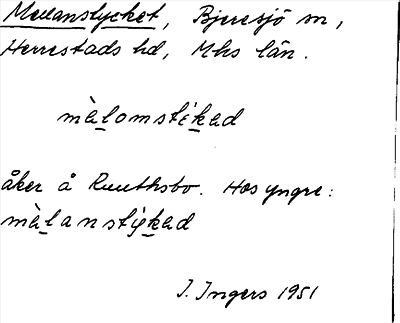 Mellanstycket, Bjeresjö sn,
Herrestads hd, Mhs län.
mèlomstikəd
åker å Ruuthsbo. Hos yngre:
mèlanstykəd
I. Ingers 1951